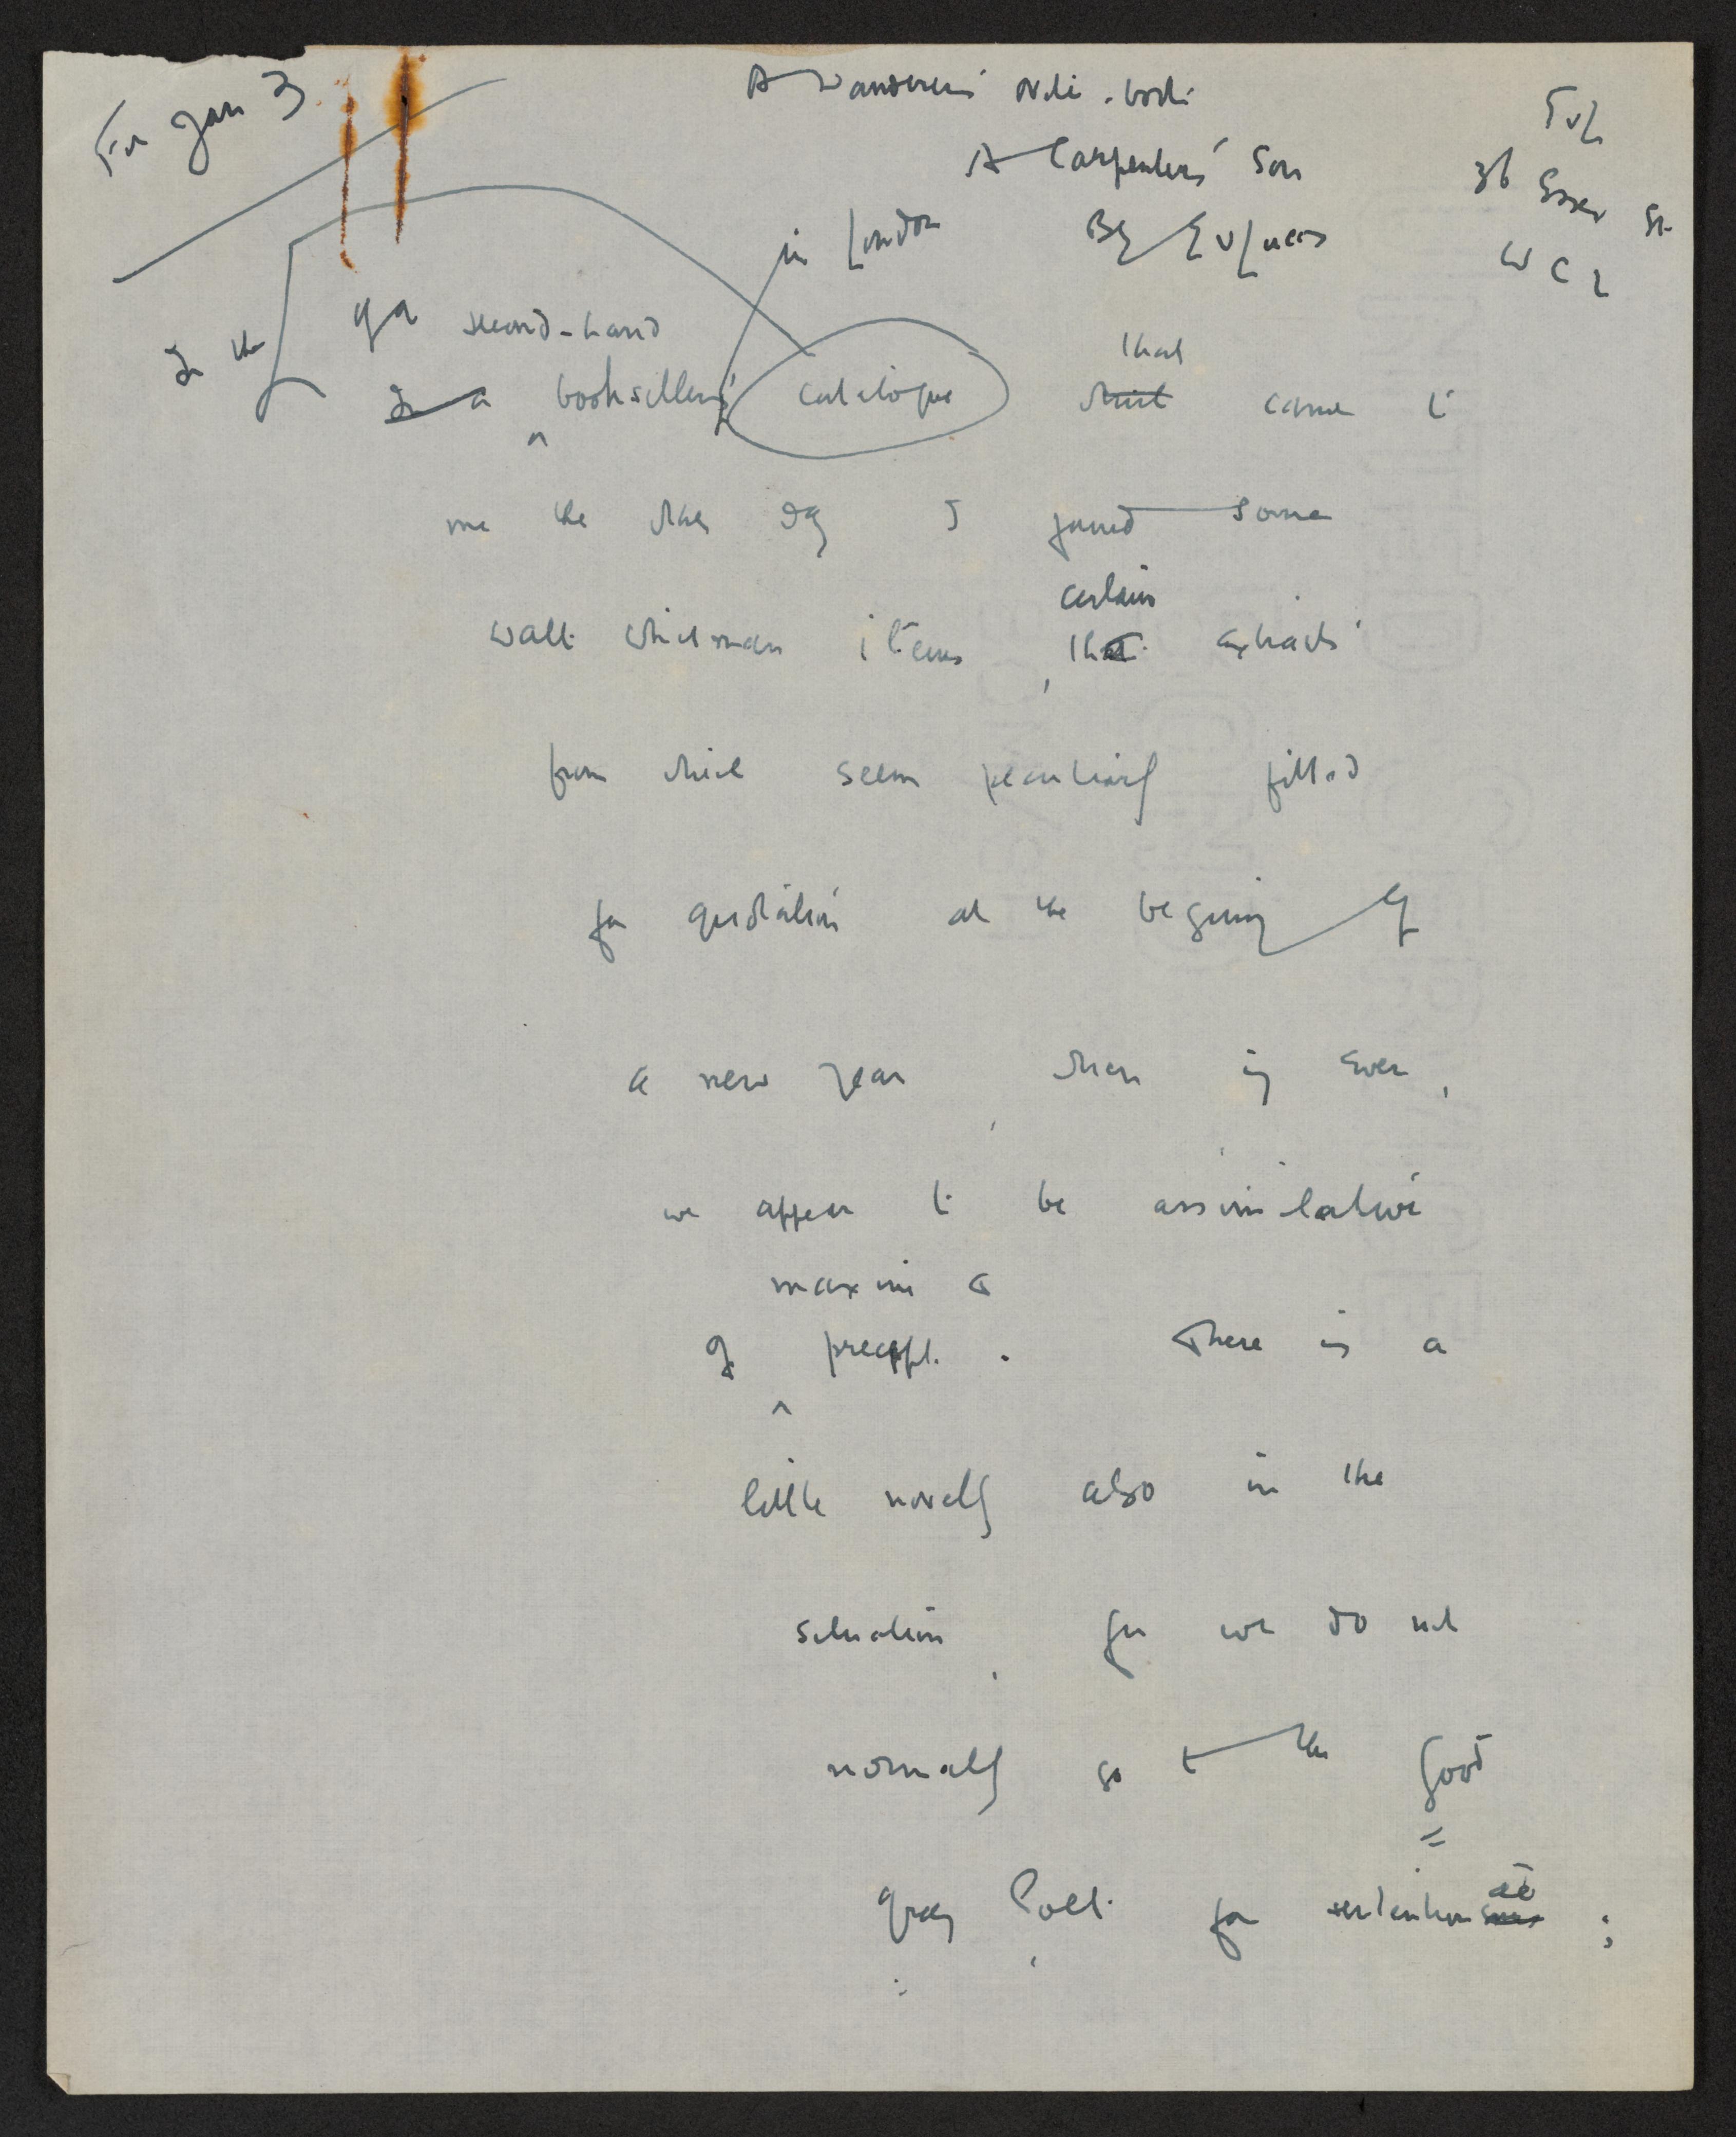 For Jan 3
A Wanderer's Note-book
A Carpenter's Son
By E V Lucas
E V L
36 Essex St
W C 2
in London
In the
of a second-hand
In a bookseller's catalogue which that came to
me the other day I found some
Walt Whitman items, certain extracts
from which seem peculiarly fitted
for quotation at the beginning of
a new year, when, if ever,
we appear to be assimilative
maxim &
of precept. There is a
little novelty also in the
situation, for we do not
normally go to the Good
Gray Poet for sententiousness;